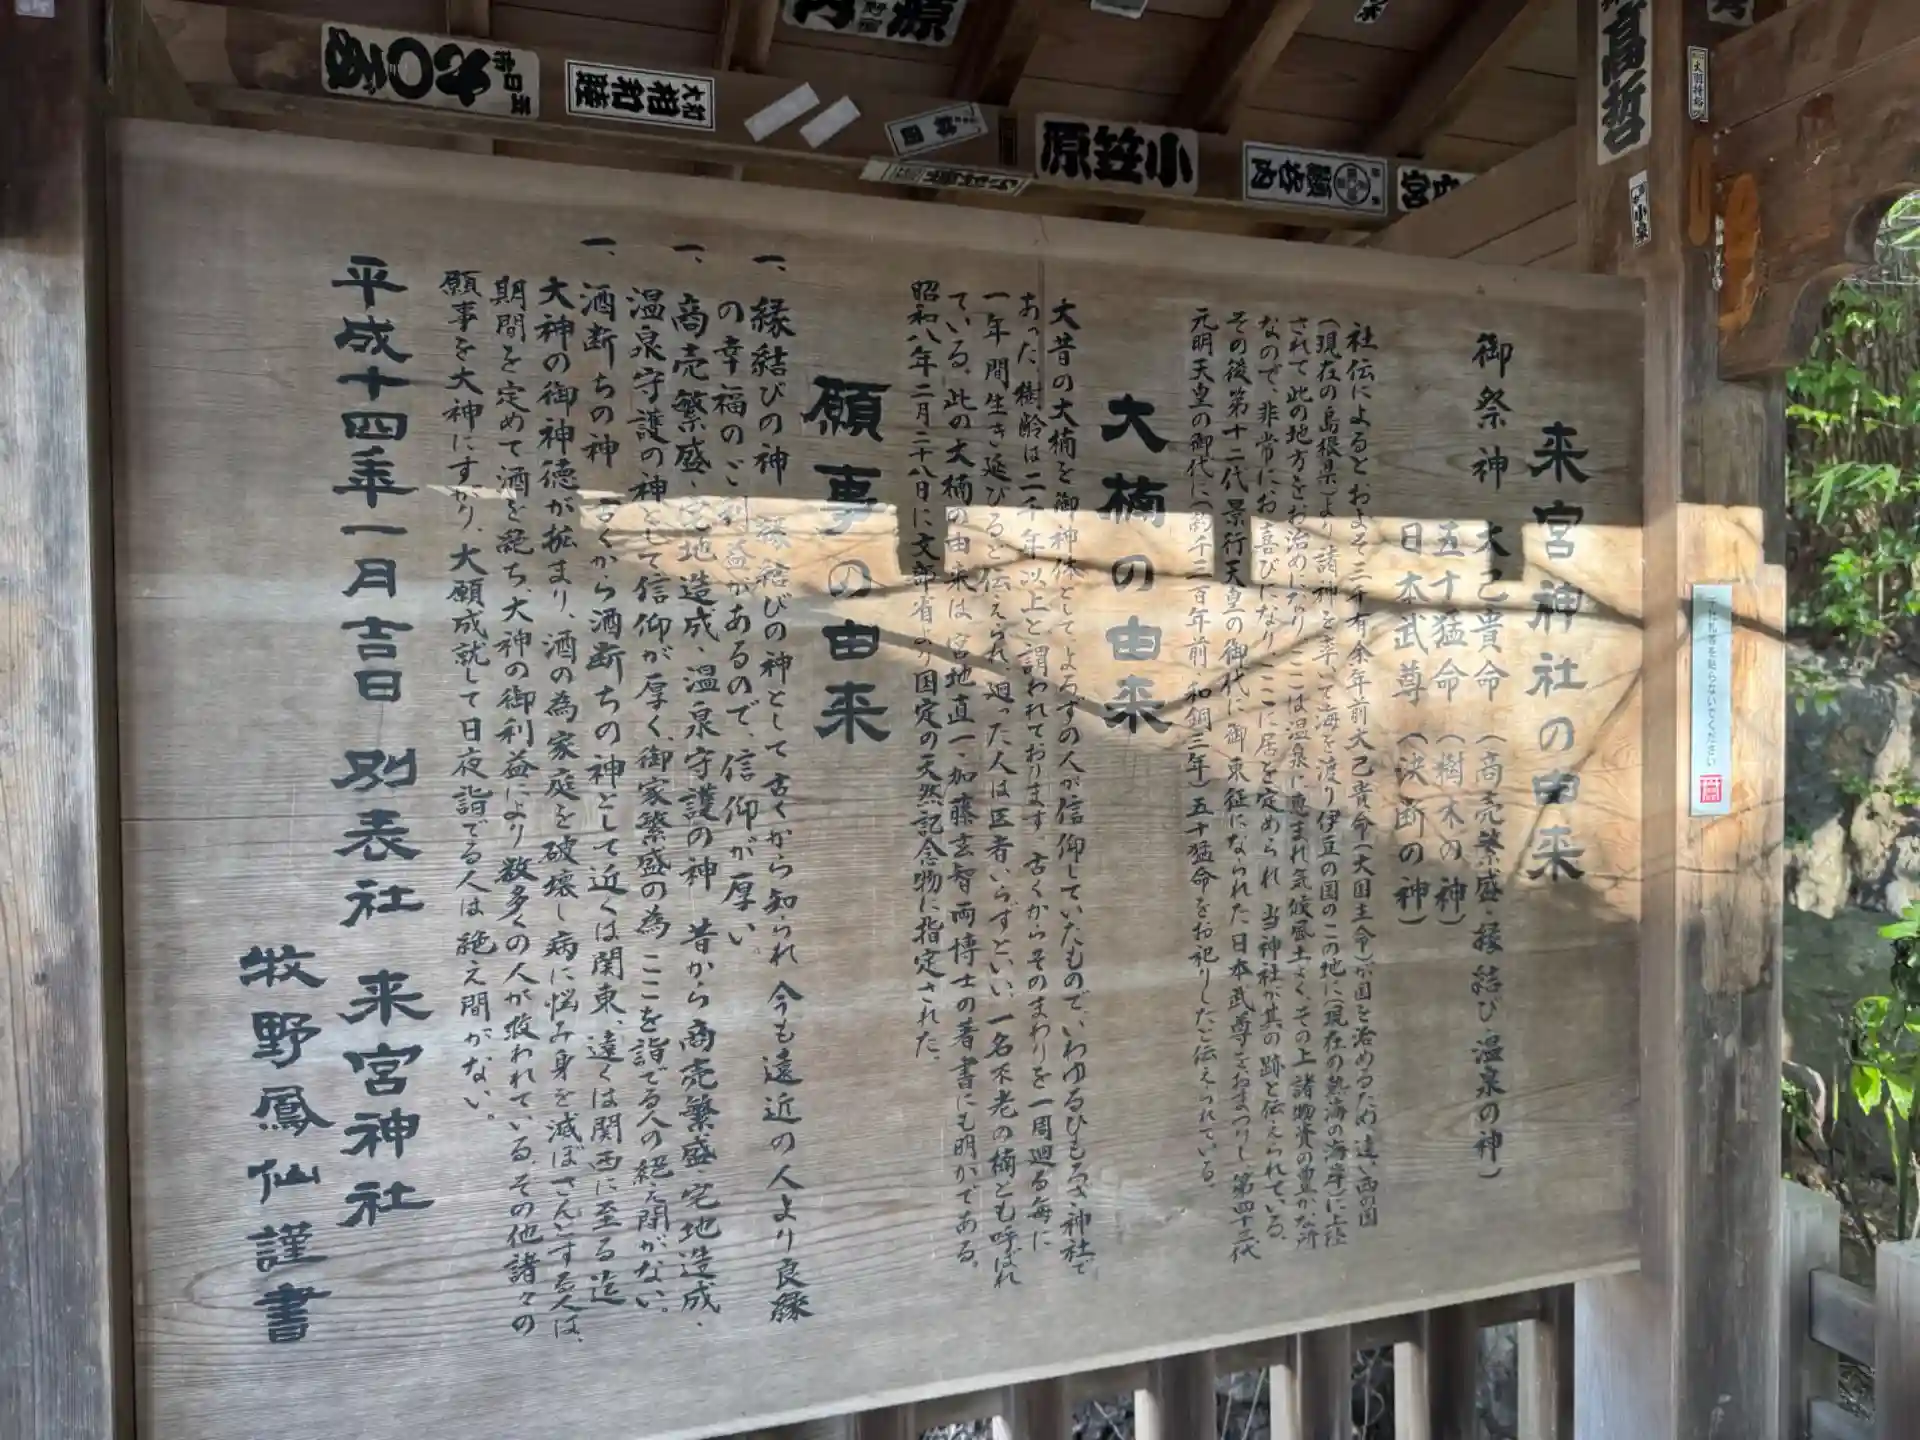 来宮神社の由来
御祭神 大己貴命(商売繁盛・縁結び・温泉の神)
五十猛命(樹木の神)
日本武尊(決断の神)
社伝によると、およそ三千有余年前大己貴命(大国主命)が国を治めるため遠い西の国
(現在の島根県)より諸神を率いて海を渡り伊豆の国のこの地に(現在の熱海の海岸)に上陸
されて此の地方をお治めになり、ここは温泉に恵まれ気候風土よく、その上諸物資の豊かな所
なので、非常にお喜びになりここに居を定められ当神社が其の跡と伝えられている。
その後第十二代景行天皇の御代に御東征になられた日本武尊をおまつりし、第四十三代
元明天皇の御代に(約千三百年前 和銅三年)五十猛命をお祀りしたと伝えられている。
大楠の由来
大昔の大楠を御神体として、よろずの人が信仰していたもので、いわゆるひもろぎ神社で
あった。樹齢は二千年以上と謂われております。古くからそのまわりを一周廻る毎に
一年間生き延びると伝えられ、廻った人は医者いらずといい、一名不老の楠とも呼ばれ
ている。此の大楠の由来は、宮地直一、加藤玄智両博士の著書にも明かである。
昭和八年二月二十八日に文部省より国定の天然記念物に指定された。
願事の由来
一、縁結びの神 縁結びの神として古くから知られ今も遠近の人より良縁
の幸福のご利益があるので、信仰が厚い。
一、商売繁盛・宅地造成・温泉守護の神 昔から商売繁盛・宅地造成・
温泉守護の神として信仰が厚く、御家繁盛の為 ここを詣でる人の絶え間がない。
一、酒断ちの神 古くから酒断ちの神として近くは関東、遠くは関西に至る迄
大神の御神徳が拡まり、酒の為家庭を破壊し病に悩み身を滅ぼさんとする人は、
期間を定めて酒を絶ち、大神の御利益により数多くの人が救われている。その他諸々の
願事を大神にすがり、大願成就して日夜詣でる人は絶え間がない。
平成十四年一月吉日 別表社 来宮神社
牧野鳳仙謹書
小笠原
高哲
小泉
これに札等を貼らないでください